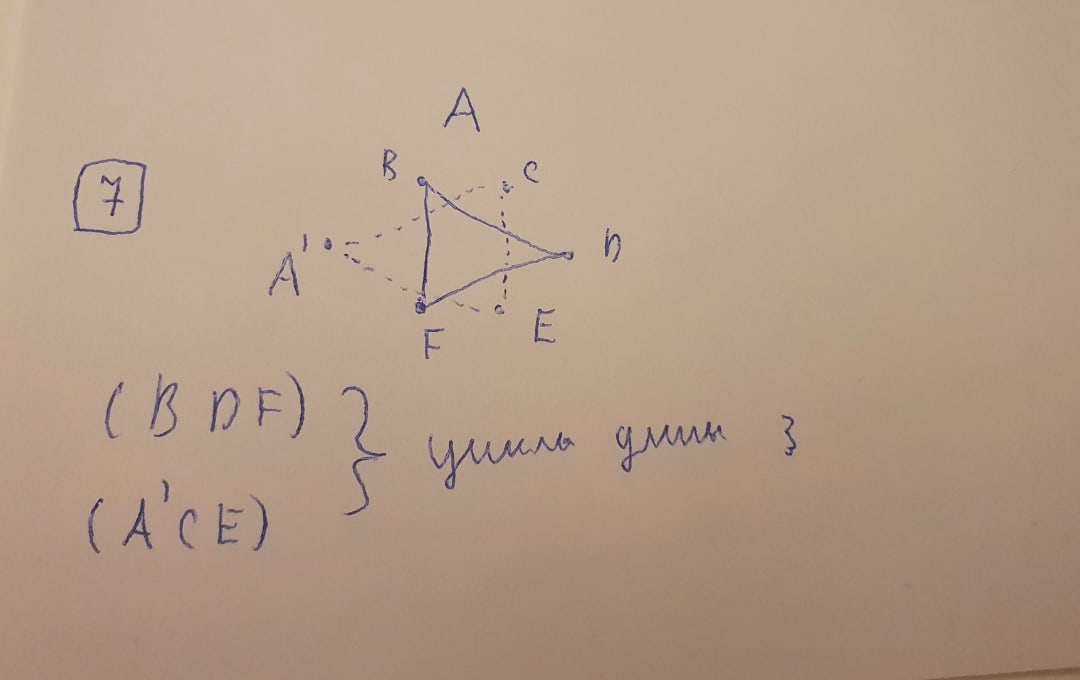 A
7
B C
A' D
F E
(B D F)
(A' C E)
} цикла длины 3